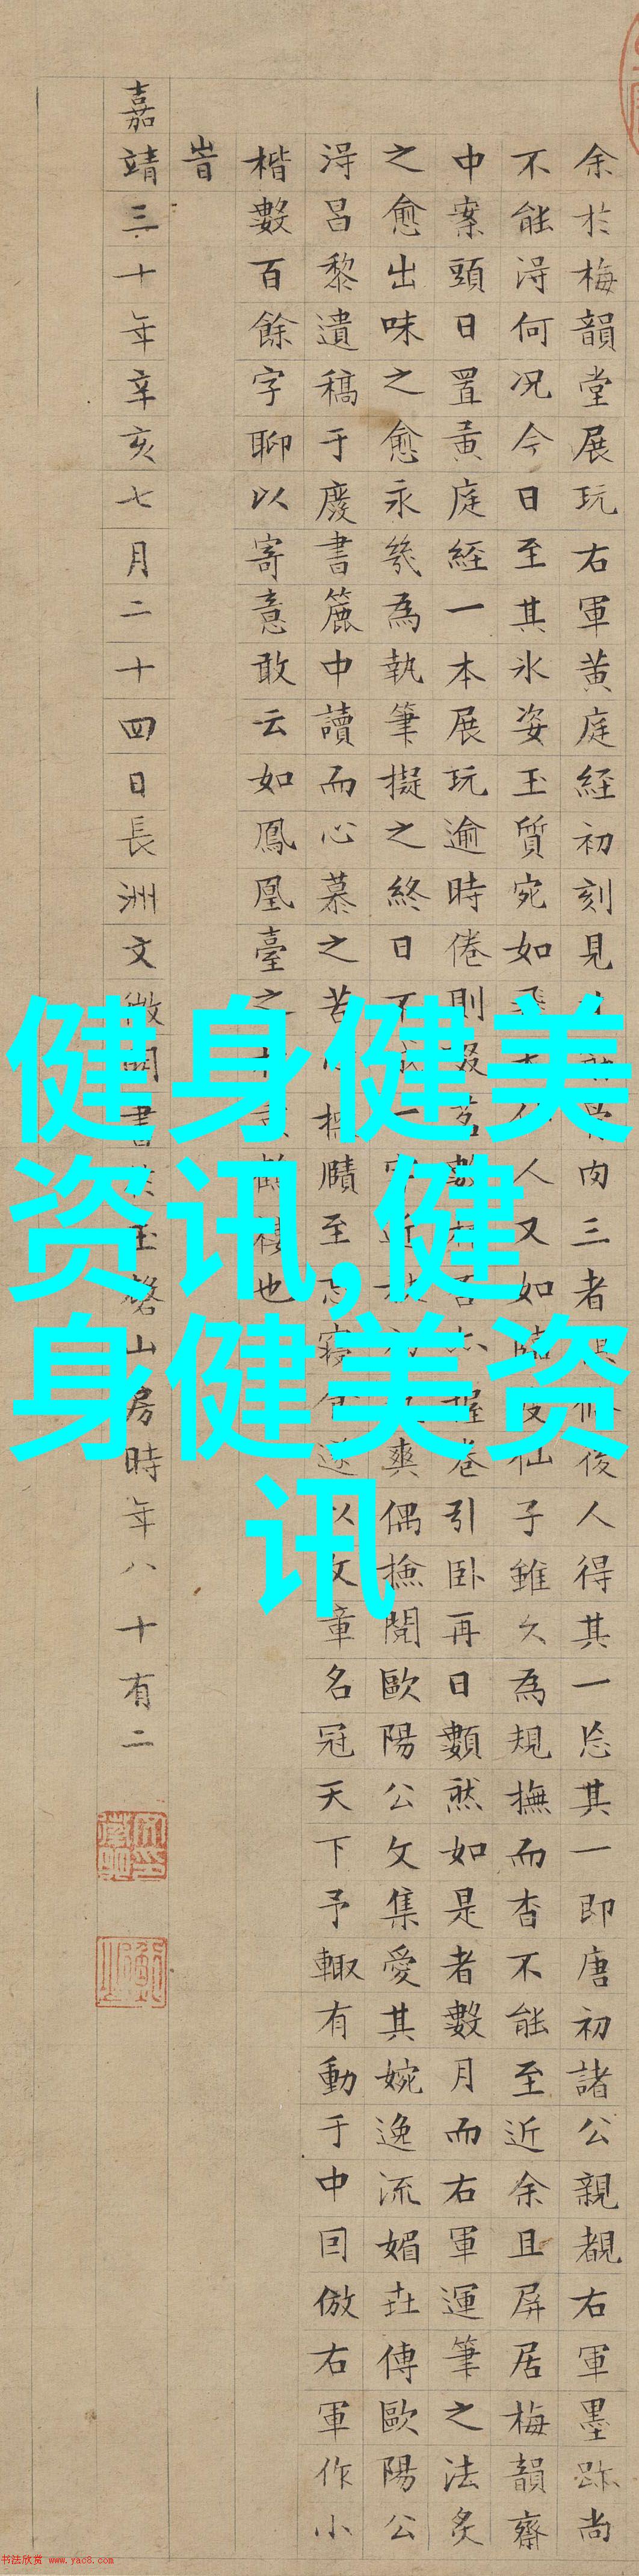 余於梅韻堂展玩右軍黄庭経初刻見肉三者後人得其一忘其一即唐初諸公親覩右軍墨跡尚
不能淂何況今日至其氷姿玉質宛如人又如仙子雖久為規撫而杳不能至近余且屏居梅韻齋
中案頭日置黄庭経一本展玩逾時倦則啜茗數握卷引卧再日數然如是者數月而右軍運筆之法炙
之愈出味之愈永幾為執筆擬之終日不一近爽偶撿閱歐陽公文集愛其婉逸流媚傳歐陽公
淂吕黎遺稿于廢書簏中讀而心慕之苦賾至忘寢食遂以文章名冠天下予輙有動于中囙倣右軍作小
楷數百餘字聊以寄意敢云如鳳凰臺之鶴樓也
旹
嘉靖三十年辛亥七月二十四日長洲文徵明書於玉磬山房時年八十有二
健身健美
资讯,健
身健美资
讯
书法欣赏 www.yac8.com